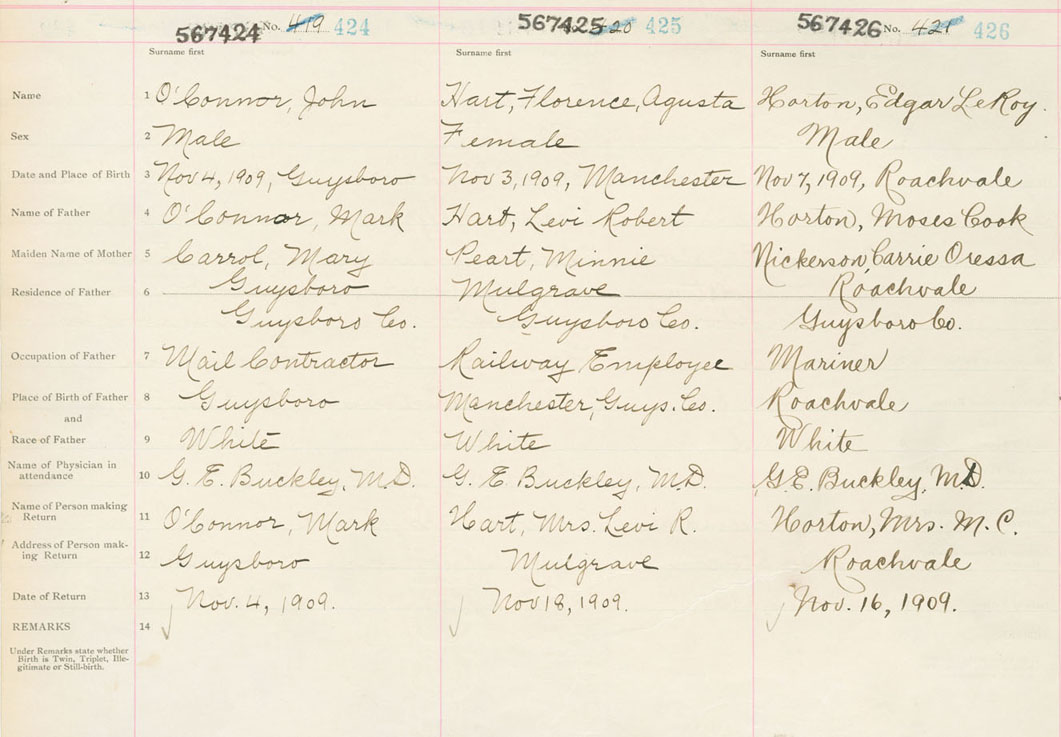 567424 No. 419 424 567425 No. 420 425 567426 No. 421 426
Surname first Surname first Surname first
Name 1 O'Connor, John Hart, Florence, Agusta Horton, Edgar LeRoy.
Sex 2 Male Female Male
Date and Place of Birth 3 Nov 4, 1909, Guysboro Nov 3, 1909, Manchester Nov 7, 1909, Roachvale
Name of Father 4 O'Connor, Mark Hart, Levi Robert Horton, Moses Cook
Maiden Name of Mother 5 Carrol, Mary Peart, Minnie Nickerson, Carrie Oressa
Residence of Father 6 Guysboro Mulgrave Roachvale
Guysboro Co. Guysboro Co. Guysboro Co.
Occupation of Father 7 Mail Contractor Railway Employee Mariner
Place of Birth of Father 8 Guysboro Manchester, Guys. Co. Roachvale
and
Race of Father 9 White White White
Name of Physician in
attendance 10 G. E. Buckley, M.D. G. E. Buckley, M.D. G. E. Buckley, M.D.
Name of Person making
Return 11 O'Connor, Mark Hart, Mrs. Levi R. Horton, Mrs. M. C.
Address of Person mak-
ing Return 12 Guysboro Mulgrave Roachvale
Date of Return 13 Nov. 4, 1909. Nov 18, 1909. Nov. 16, 1909.
REMARKS 14
Under Remarks state whether
Birth is Twin, Triplet, Ille-
gitimate or Still-birth.